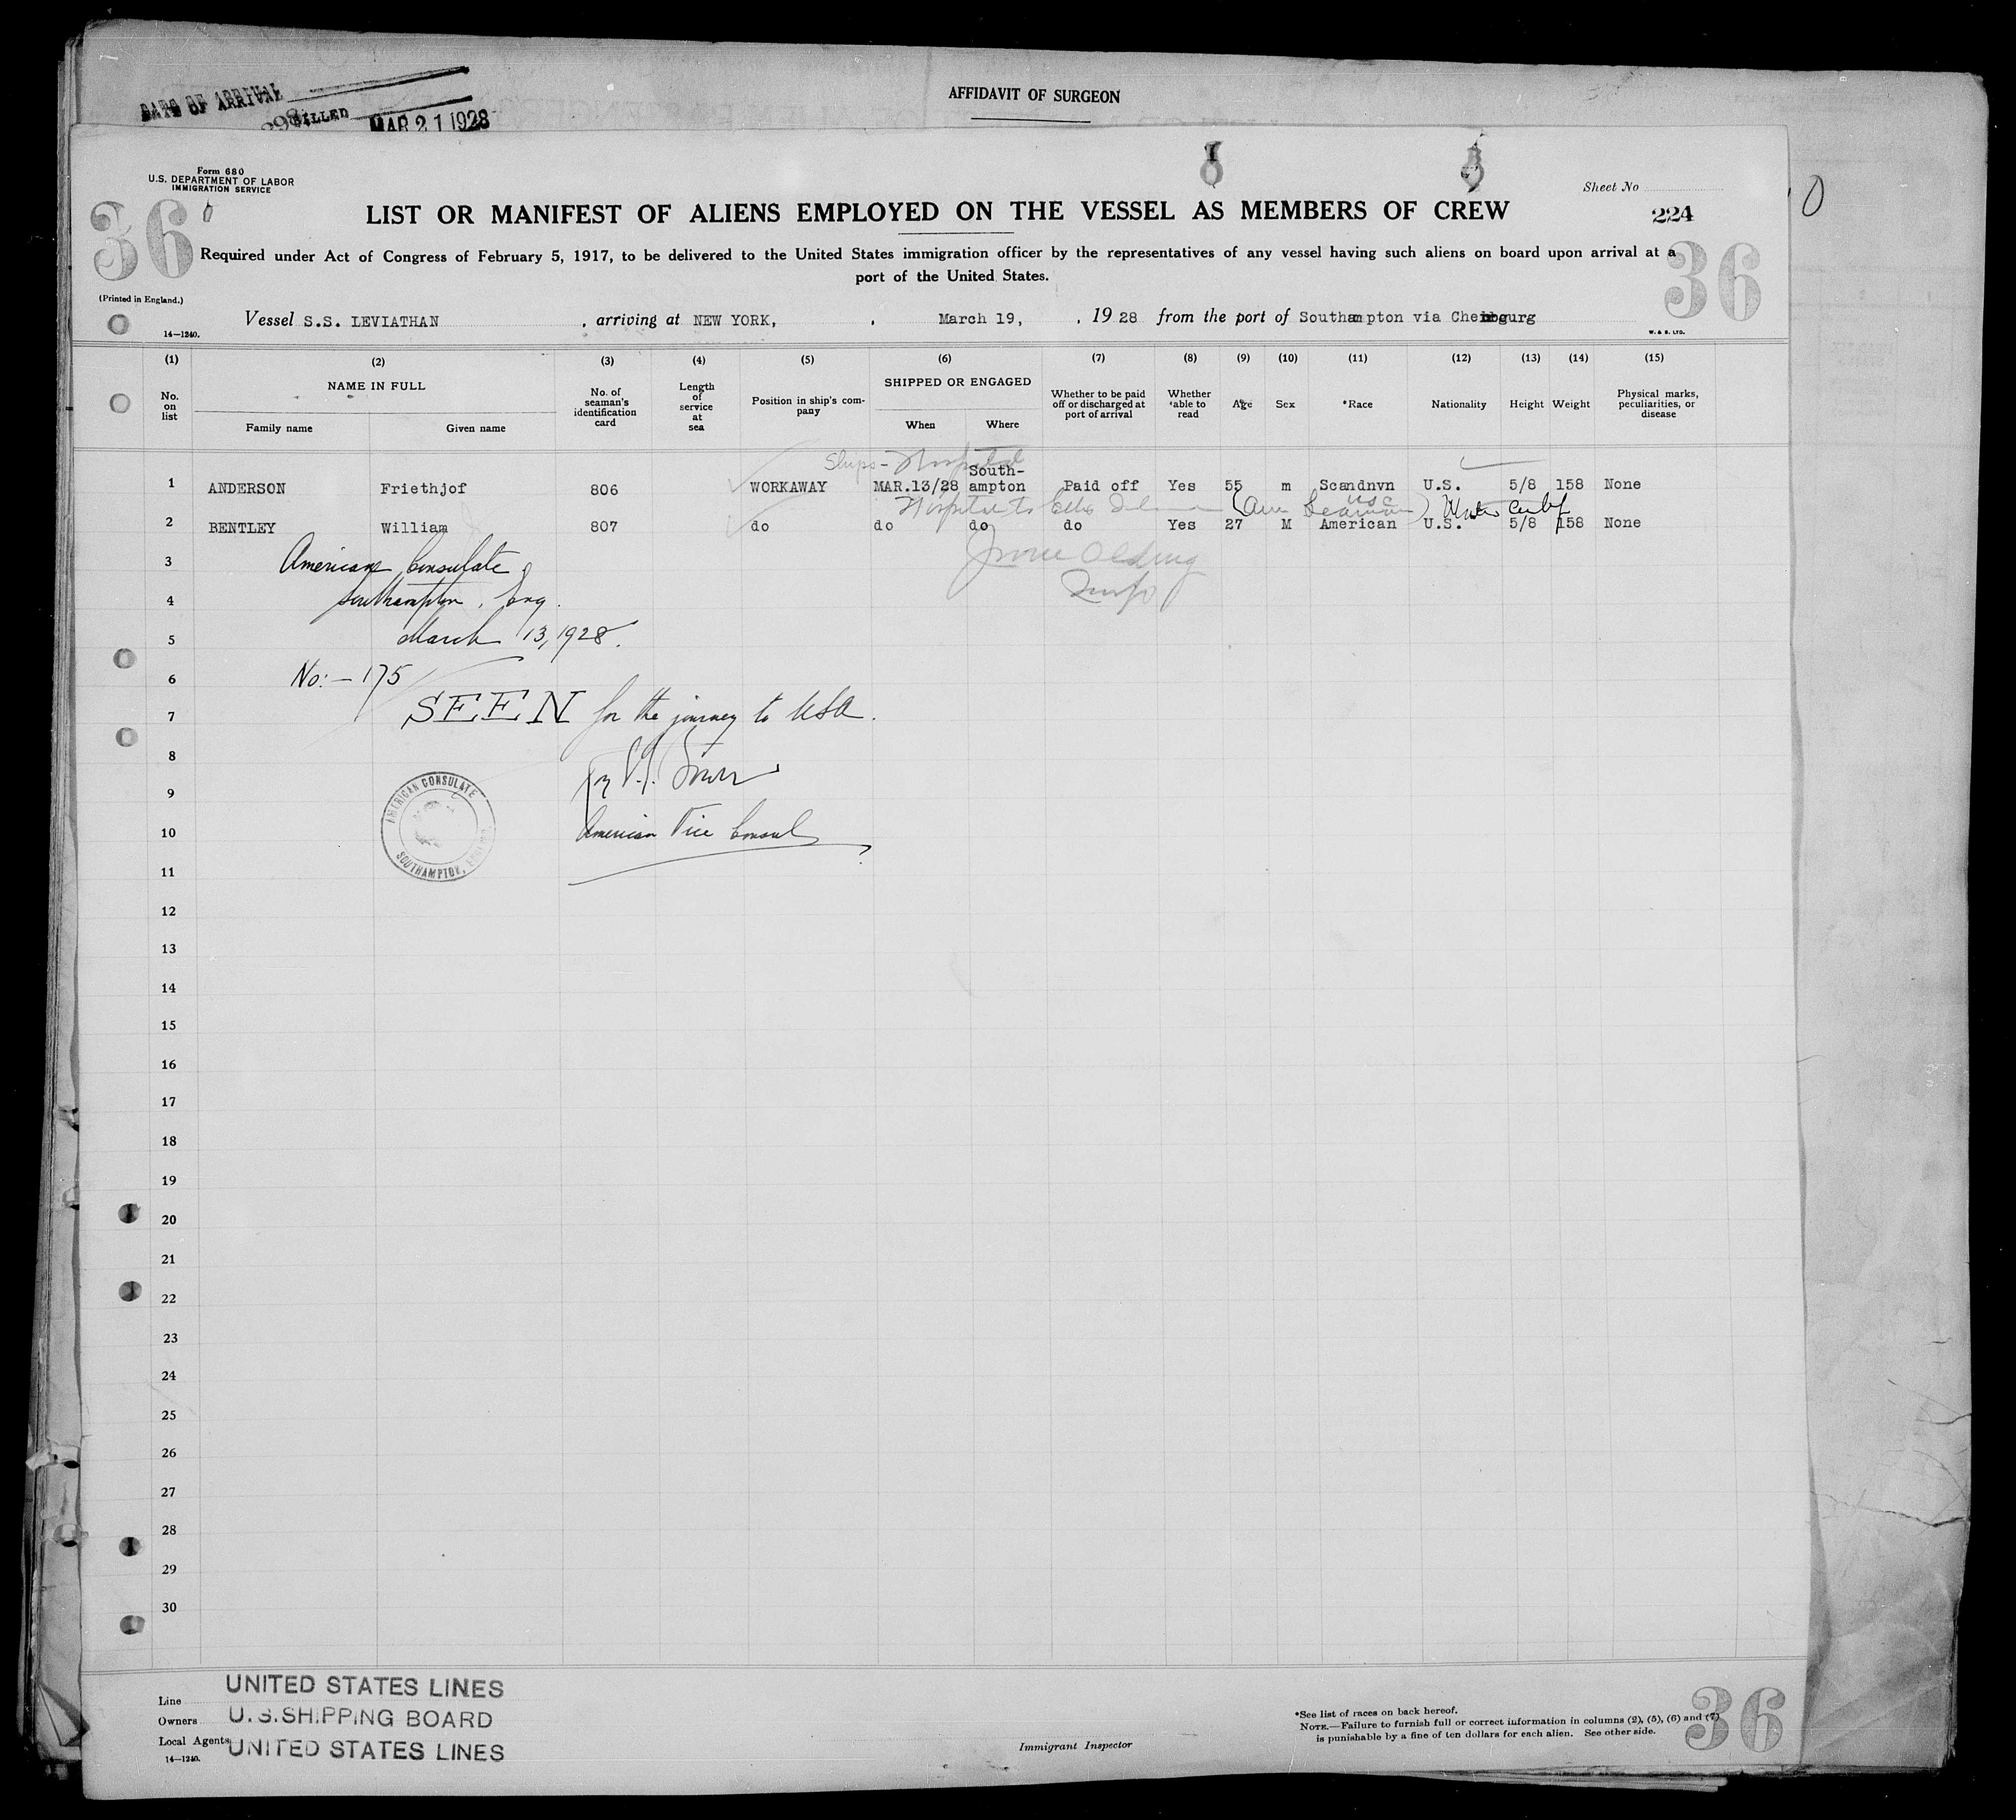 DATE OF ARRIVAL
AFFIDAVIT OF SURGEON
FILLED MAR 21 1928
Form 680
U.S. DEPARTMENT OF LABOR
IMMIGRATION SERVICE
Sheet No
224
36
36
LIST OR MANIFEST OF ALIENS EMPLOYED ON THE VESSEL AS MEMBERS OF CREW
Required under Act of Congress of February 5, 1917, to be delivered to the United States immigration officer by the representatives of any vessel having such aliens on board upon arrival at a
port of the United States.
(Printed in England.)
14—1240.
Vessel S.S. LEVIATHAN , arriving at NEW YORK, , March 19, , 1928 from the port of Southampton via Cherbourg
W. & S. LTD.
(1) (2) (3) (4) (5) (6) (7) (8) (9) (10) (11) (12) (13) (14) (15)
No. on list
NAME IN FULL
Family name Given name
No. of seaman's identification card
Length of service at sea
Position in ship's company
SHIPPED OR ENGAGED
When Where
Whether to be paid off or discharged at port of arrival
Whether able to read
Age
Sex
*Race
Nationality
Height
Weight
Physical marks, peculiarities, or disease
Ships - Hospital
1 ANDERSON Friethjof 806 WORKAWAY MAR.13/28 South-ampton Paid off Yes 55 m Scandnvn U.S. 5/8 158 None
Hospital to Ellis (Am Seaman)
USC
2 BENTLEY William 807 do do do do Yes 27 M American U.S. 5/8 158 None
3 American Consulate
4 Southampton, Eng.
5 March 13, 1928.
6 No:— 175
7 SEEN for the journey to USA.
8
9
10 American Vice Consul
AMERICAN CONSULATE
SOUTHAMPTON, ENGLAND.
11
12
13
14
15
16
17
18
19
20
21
22
23
24
25
26
27
28
29
30
Line UNITED STATES LINES
Owners U.S. SHIPPING BOARD
Local Agents UNITED STATES LINES
14—1240.
Immigrant Inspector
*See list of races on back hereof.
NOTE.—Failure to furnish full or correct information in columns (2), (5), (6) and (7)
is punishable by a fine of ten dollars for each alien. See other side.
36